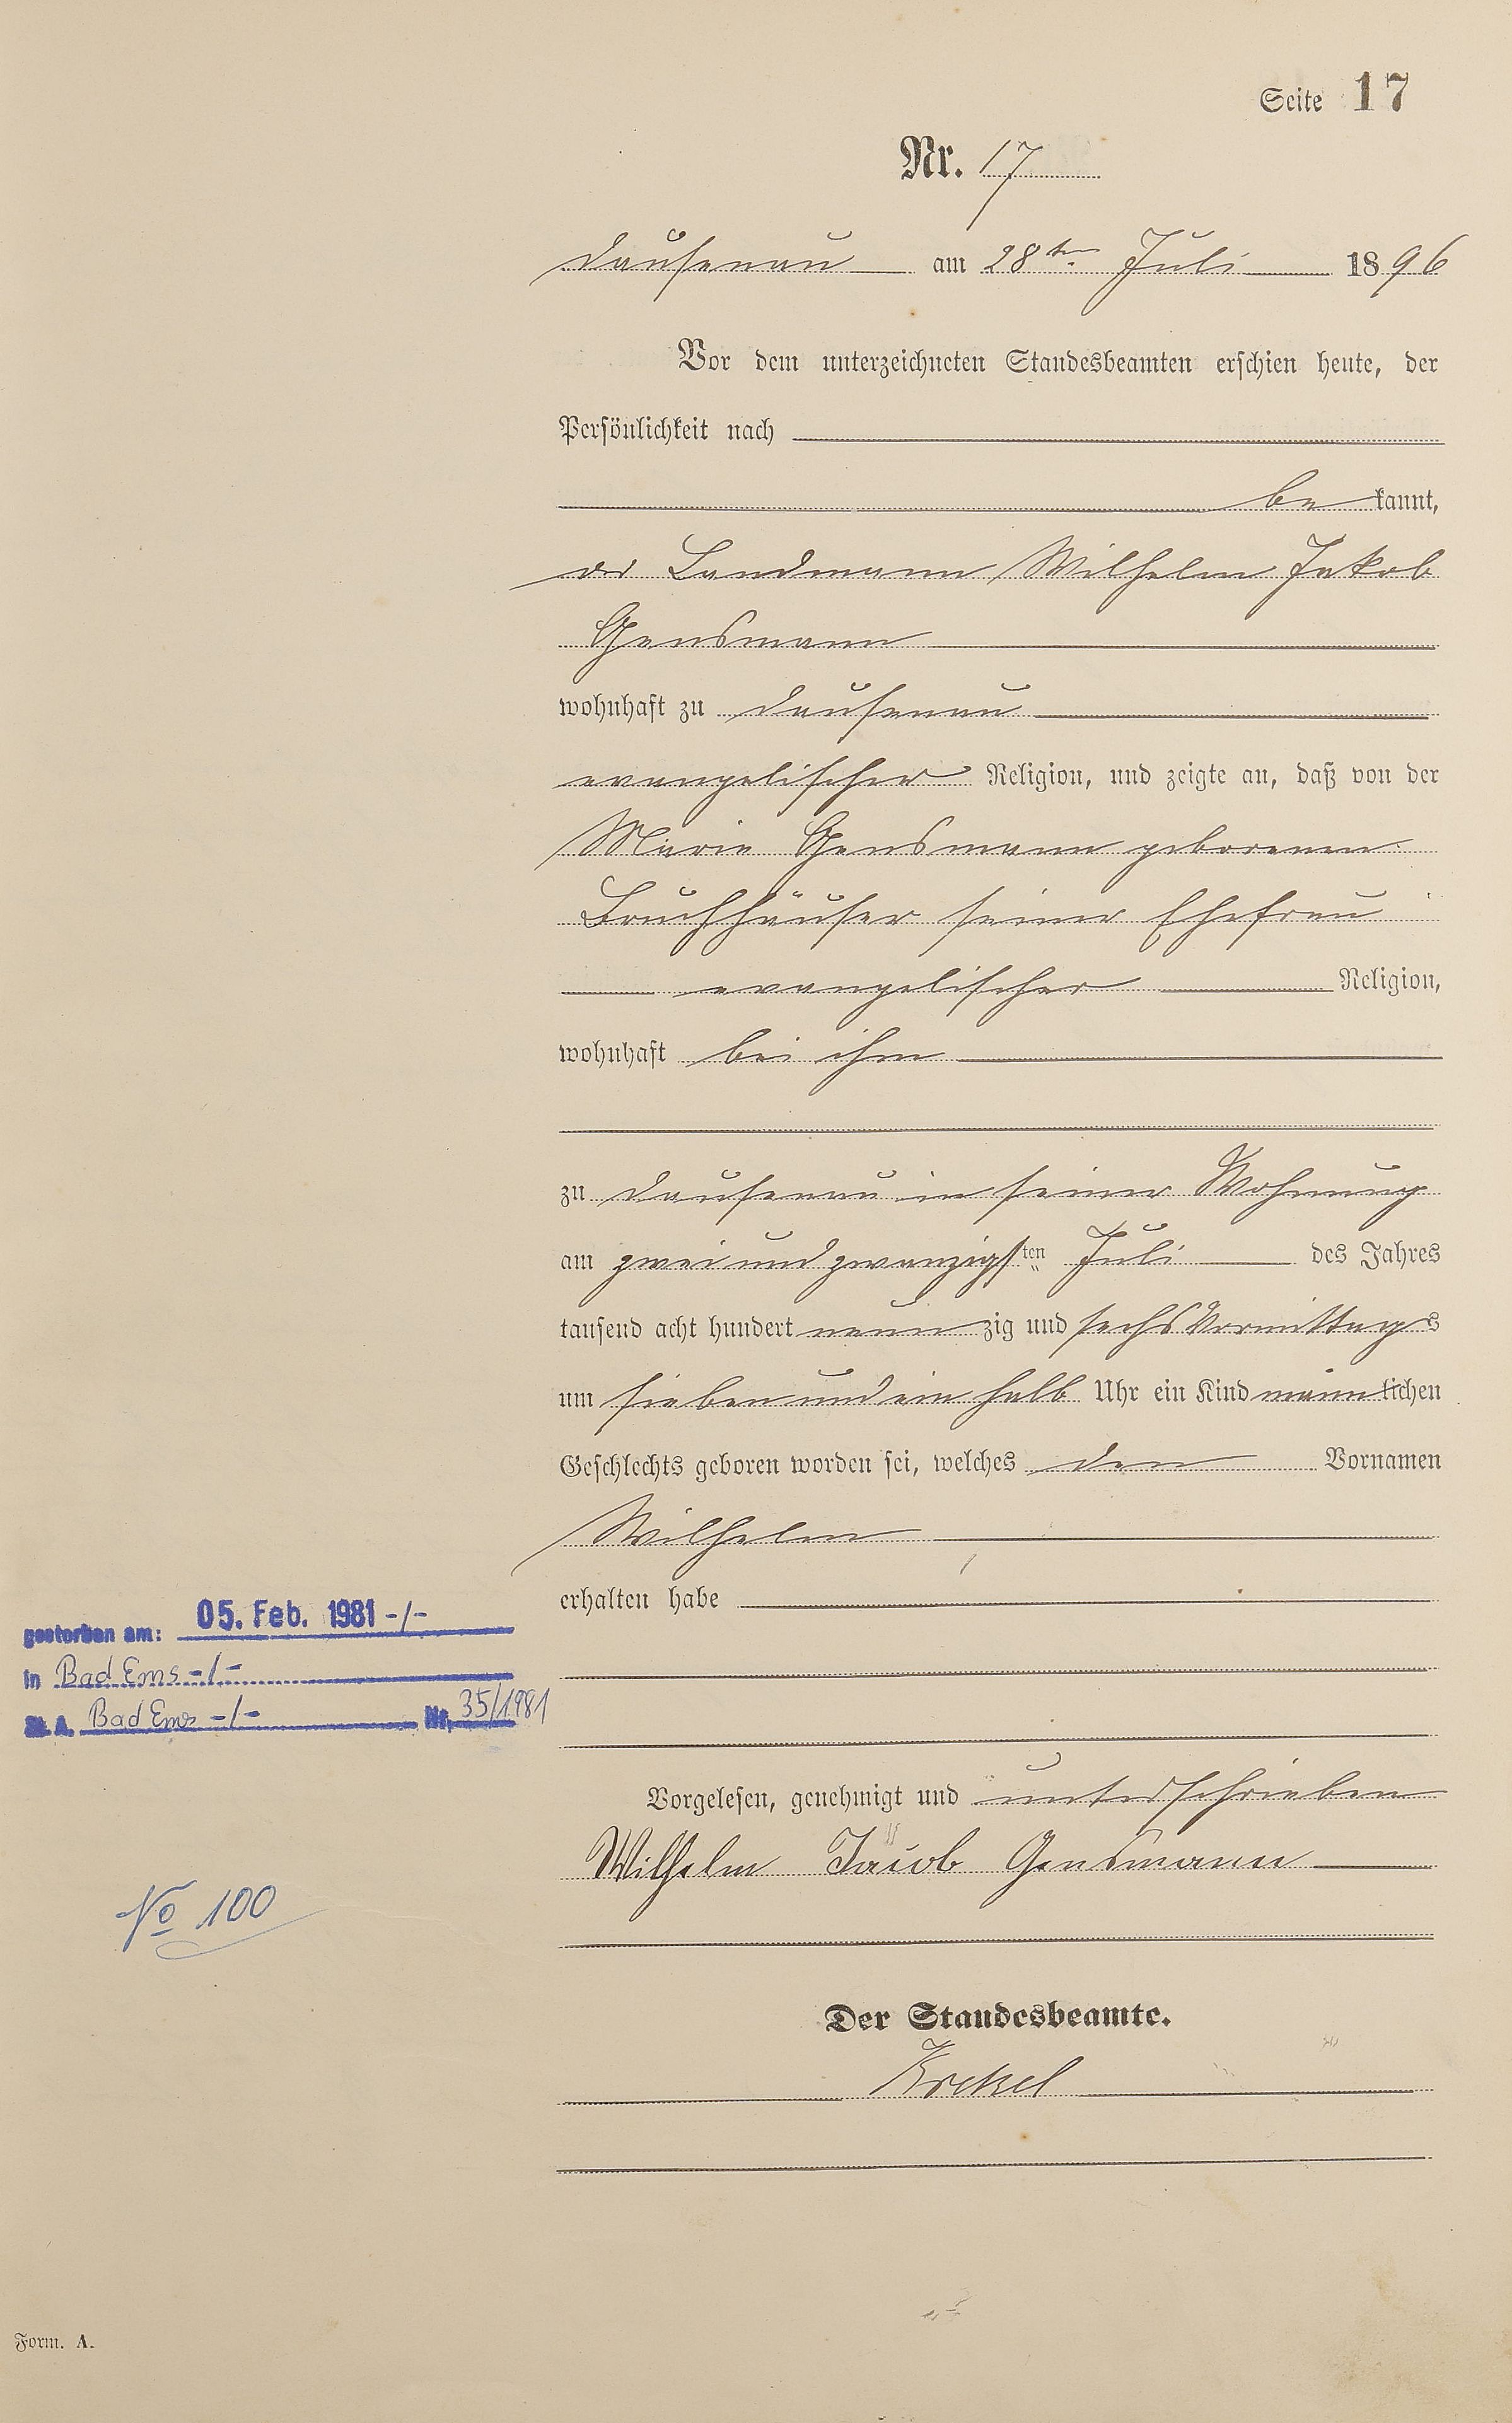 Seite 17
Nr. 17
Dausenau am 28ten Juli 1896
Vor dem unterzeichneten Standesbeamten erschien heute, der
Persönlichkeit nach
be kannt,
der Landmann Wilhelm Jakob
Gensmann
wohnhaft zu Dausenau
evangelischer Religion, und zeigte an, daß von der
Marie Gensmann geborenen
Bruchhäuser seiner Ehefrau
evangelischer Religion,
wohnhaft bei ihm
zu Dausenau in seiner Wohnung
am zwei und zwanzigsten Juli des Jahres
tausend acht hundert neun zig und sechs Vormittags
um sieben und ein halb Uhr ein Kind männlichen
Geschlechts geboren worden sei, welches den Vornamen
Wilhelm
erhalten habe
gestorben am: 05. Feb. 1981 -/-
in Bad Ems -/-
St. A. Bad Ems -/- Nr. 35/1981
Vorgelesen, genehmigt und unterschrieben
Wilhelm Jacob Gensmann
No 100
Der Standesbeamte.
Krekel
Form. A.